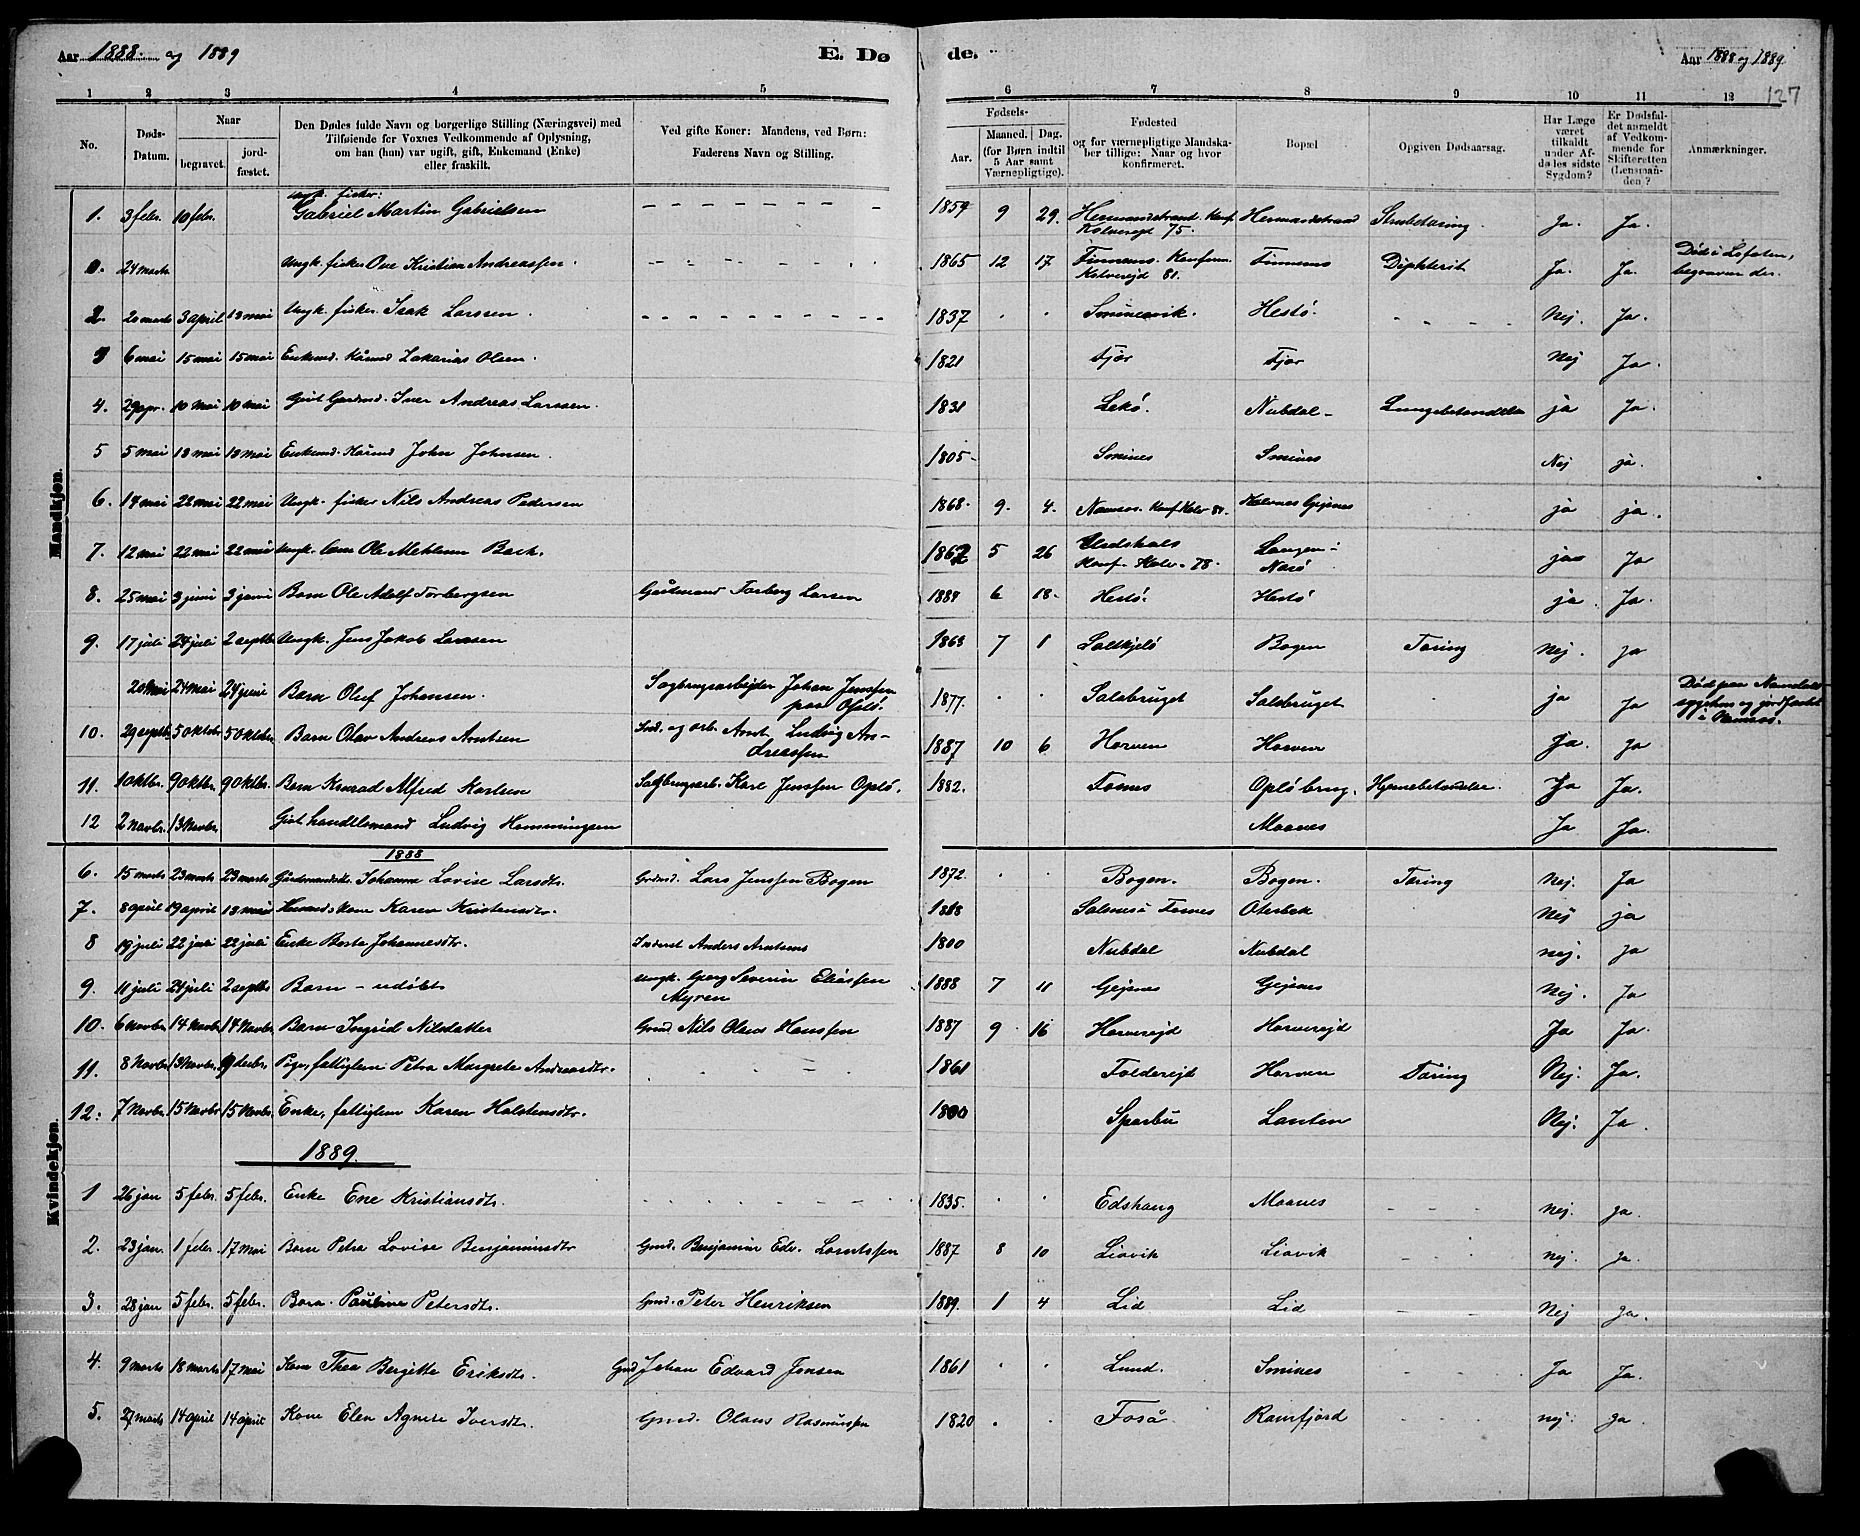 Aar 1888 og 1889 E. Dø
de. Aar 1888 og 1889
127
1 2 3 4 5 6 7 8 9 10 11 12
No. Døds-Datum. Naar begravet. jordfæstet. Den Dødes fulde Navn og borgerlige Stilling (Næringsvei) med Tilføiende for Voxnes Vedkommende af Oplysning, om han (hun) var ugift, gift, Enkemand (Enke) eller fraskilt. Ved gifte Koner: Mandens, ved Børn: Faderens Navn og Stilling. Fødsels- Aar. Maaned. Dag. (for Børn indtil 5 Aar samt Værnepligtige). Fødested og for værnepligtige Mandskaber tillige: Naar og hvor konfirmeret. Bopæl Opgiven Dødsaarsag. Har Læge været tilkaldt under Afdødes sidste Sygdom? Er Dødsfaldet anmeldt af Vedkommende for Skifteretten (Lensmanden? Anmærkninger.
Mandkjøn.
1. 3 febr. 10 febr. Ungk. fisker: Gabriel Martin Gabrielsen 1859 9 29. Hermandstrand. Konf. Kolverejd 75. Hermandstrand Strubetæring. Ja. Ja.
0. 24 marts Ungk. fisker Ove Kristian Andreassen. 1865 12 17 Finnemo. Konfirm. Kolverejd 81. Finnemo Diphterit Ja. Ja. Død i Lofoten, begraven der.
2. 20 marts 3 april 13 mai Ungk. fisker. Isak Larssen. 1837 Hestø. Nej. Ja.
3 6 mai 15 mai 15 mai Enkemd. Kårmd Zakarias Olsen. 1821 Fjør Fjør Nej Ja.
4. 29 apr. 10 Mai 10 mai Gift Gardmd. Iver Andreas Larssen. 1831 Lekø. Nubdal Lungebetændelse ja Ja.
5 5 mai 13 mai 13 mai Enkemd. Kårmd John Johnsen. 1805 Smines Smines Nej ja.
6. 14 mai 22 mai 22 mai Ungk. fisker Nils Andreas Pedersen 1868. 9. 4. Namsos. Konf. Kolv 84. Gejsnes ja ja.
7. 12 mai 22 mai 22 mai Ungk. Ole Bach. 1862 5 26 Konf. Kolv. 78. Nærø ja Ja
8. 25 mai 3 juni 3 juni Barn Ole Adolf Torbergsen Gårdmand Torberg Larsen 1884 6 18. Hestø. Hestø ja. Ja.
9. 17 juli 24 juli 2 septb. Ungk. Jens Jakob Larssen 1863 7 1 Bogen Tæring Nej. Ja
20 Mai 24 Mai 24 juni Barn Oluf Johansen. Sagbrugsarbejder Johan Jenssen paa Opløi. 1877. Salsbruget Salsbruget ja Ja Død paa Namdals sygehus og jordfæstet i Namsos.
10. 29 septb. 5 oktbr. 5 oktbr. Barn Olav Andreas Arntsen Ind. og arb. Arnt Ludvig Andreassen 1887 10 6 Horven Horven Ja. Ja
11. 1 oktbr. 9 oktbr. 9 oktbr. Barn Konrad Alfred Karlsen Sagbrugsarb. Karl Jenssen Opløi. 1882. Fosnes Opløibrug. Hjernebetændelse. Ja Ja.
12 2 Novbr. 13 Novbr. Gift handelsmand Ludvig Hemmingsen Moanes Ja Ja.
Kvindekjøn.
1888
6. 15 marts 23 marts 23 marts Gårdmandsdtr. Johanna Lovise Larsdtr. Grdmd. Lars Jenssen Bogen 1872. Bogen. Bogen. Tæring Nej. Ja
7. 8 april 19 april 13 mai kone Karen Kristensdtr. 1818 Salsnes i Fosnes Oterbek Nej ja
8 19 juli 22 juli 22 juli Enke Berte Johannesdtr. Inderst Anders Arntsens 1800 Nubdal Nubdal nej. Ja
9. 11 juli 24 juli 2 septb Barn – udøbt Ungk. Georg Severin Eliassen Myren 1888 7 11 Gejsnes Gejsnes Nej. Ja
10. 6 Novbr. 14 Novbr. 14 Novbr. Barn Ingrid Nilsdatter Grmd. Nils Olaus Hanssen 1887 9 16 Horverejd Horverejd Ja Ja.
11. 8 Novbr. 13 Novbr. 9 decbr. Pige, fattiglem Petra Margrete Andreasdtr. 1861 Folderejd Horven Tæring Nej. Ja.
12. 7 Novbr. 15 Novbr 15 Novbr. Enke, fattiglem Karen Halstensdtr. 1800 Sparbu Lauten Nej. Ja.
1889.
1 26 jan 5 febr. 5 febr. Enke Ene Kristiansdtr. 1835. Edshaug Moanes nej. Ja.
2. 23 jan. 1 febr. 17 mai Barn Petra Lovise Benjaminsdtr Gmd. Benjamin Edv. Lorntssen 1887 8 10 Liavik Liavik nej. Ja.
3. 28 jan 5 febr. 5 febr. Barn. Pauline Petersdtr. Gmd. Peter Henriksen 1889. 1 4 Lid Lid Nej Ja.
4. 9 marts 18 marts 17 mai Kone Thea Bergitte Eriksdtr. Gmd Johan Edvard Jensen 1861 Lund. Smines Ja Ja.
5. 27 marts 14 april 14 april Kone Elen Agnese Iversdtr. Gmd. Olaus Rasmussen 1820 Foså Ramfjord nej. Ja.